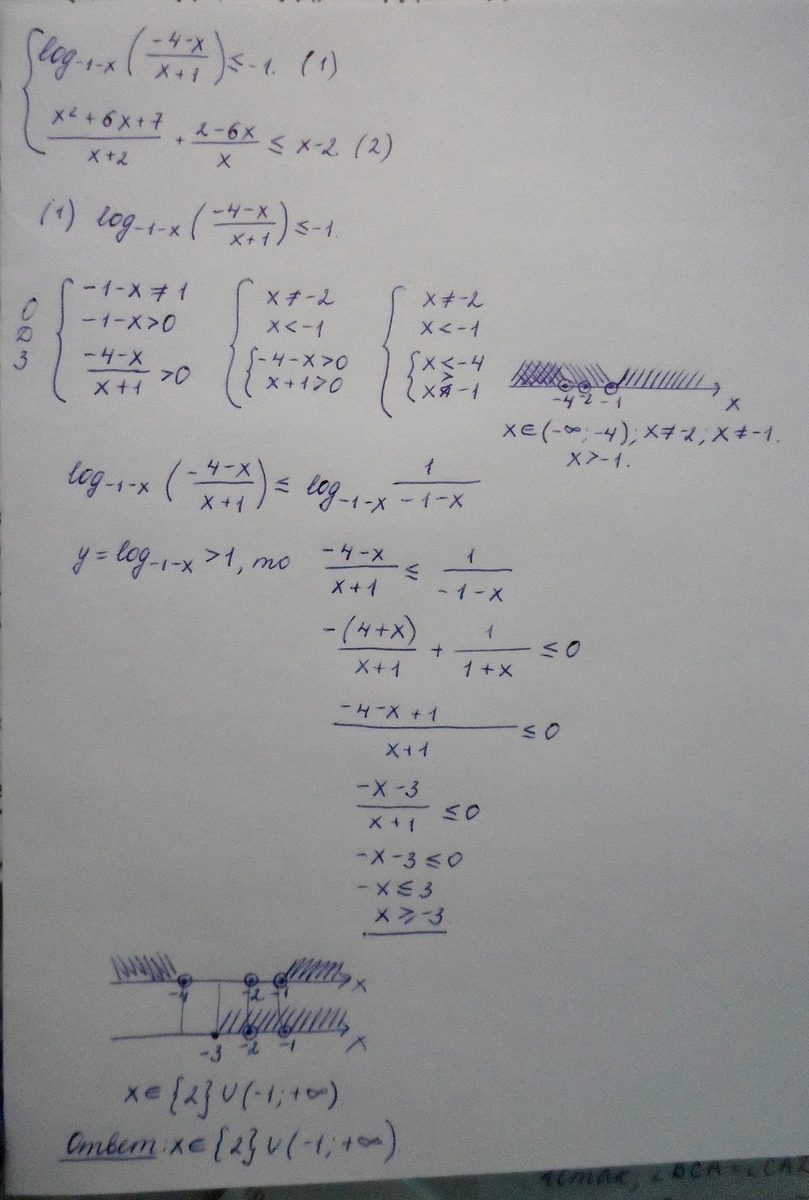 { log₋₁₋ₓ ((-4-x)/(x+1)) ≤ -1. (1)
{ (x²+6x+7)/(x+2) + (2-6x)/x ≤ x-2. (2)
(1) log₋₁₋ₓ ((-4-x)/(x+1)) ≤ -1.
ОДЗ { -1-x≠1 { x≠-2 { x≠-2
-1-x>0 x<-1 x<-1
(-4-x)/(x+1) >0 { -4-x>0 { x<-4
x+1>0 x>-1
-4 -2 -1 x
x∈(-∞;-4); x≠-2; x≠-1.
x>-1.
log₋₁₋ₓ ((-4-x)/(x+1)) ≤ log₋₁₋ₓ 1/(-1-x)
y=log₋₁₋ₓ >1, то (-4-x)/(x+1) ≤ 1/(-1-x)
-(4+x)/(x+1) + 1/(1+x) ≤ 0
(-4-x+1)/(x+1) ≤ 0
(-x-3)/(x+1) ≤ 0
-x-3≤0
-x≤3
x≥-3
-4 -2 -1 x
-3 -2 -1 x
x∈{2}∪(-1;+∞)
Ответ: x∈{2}∪(-1;+∞)